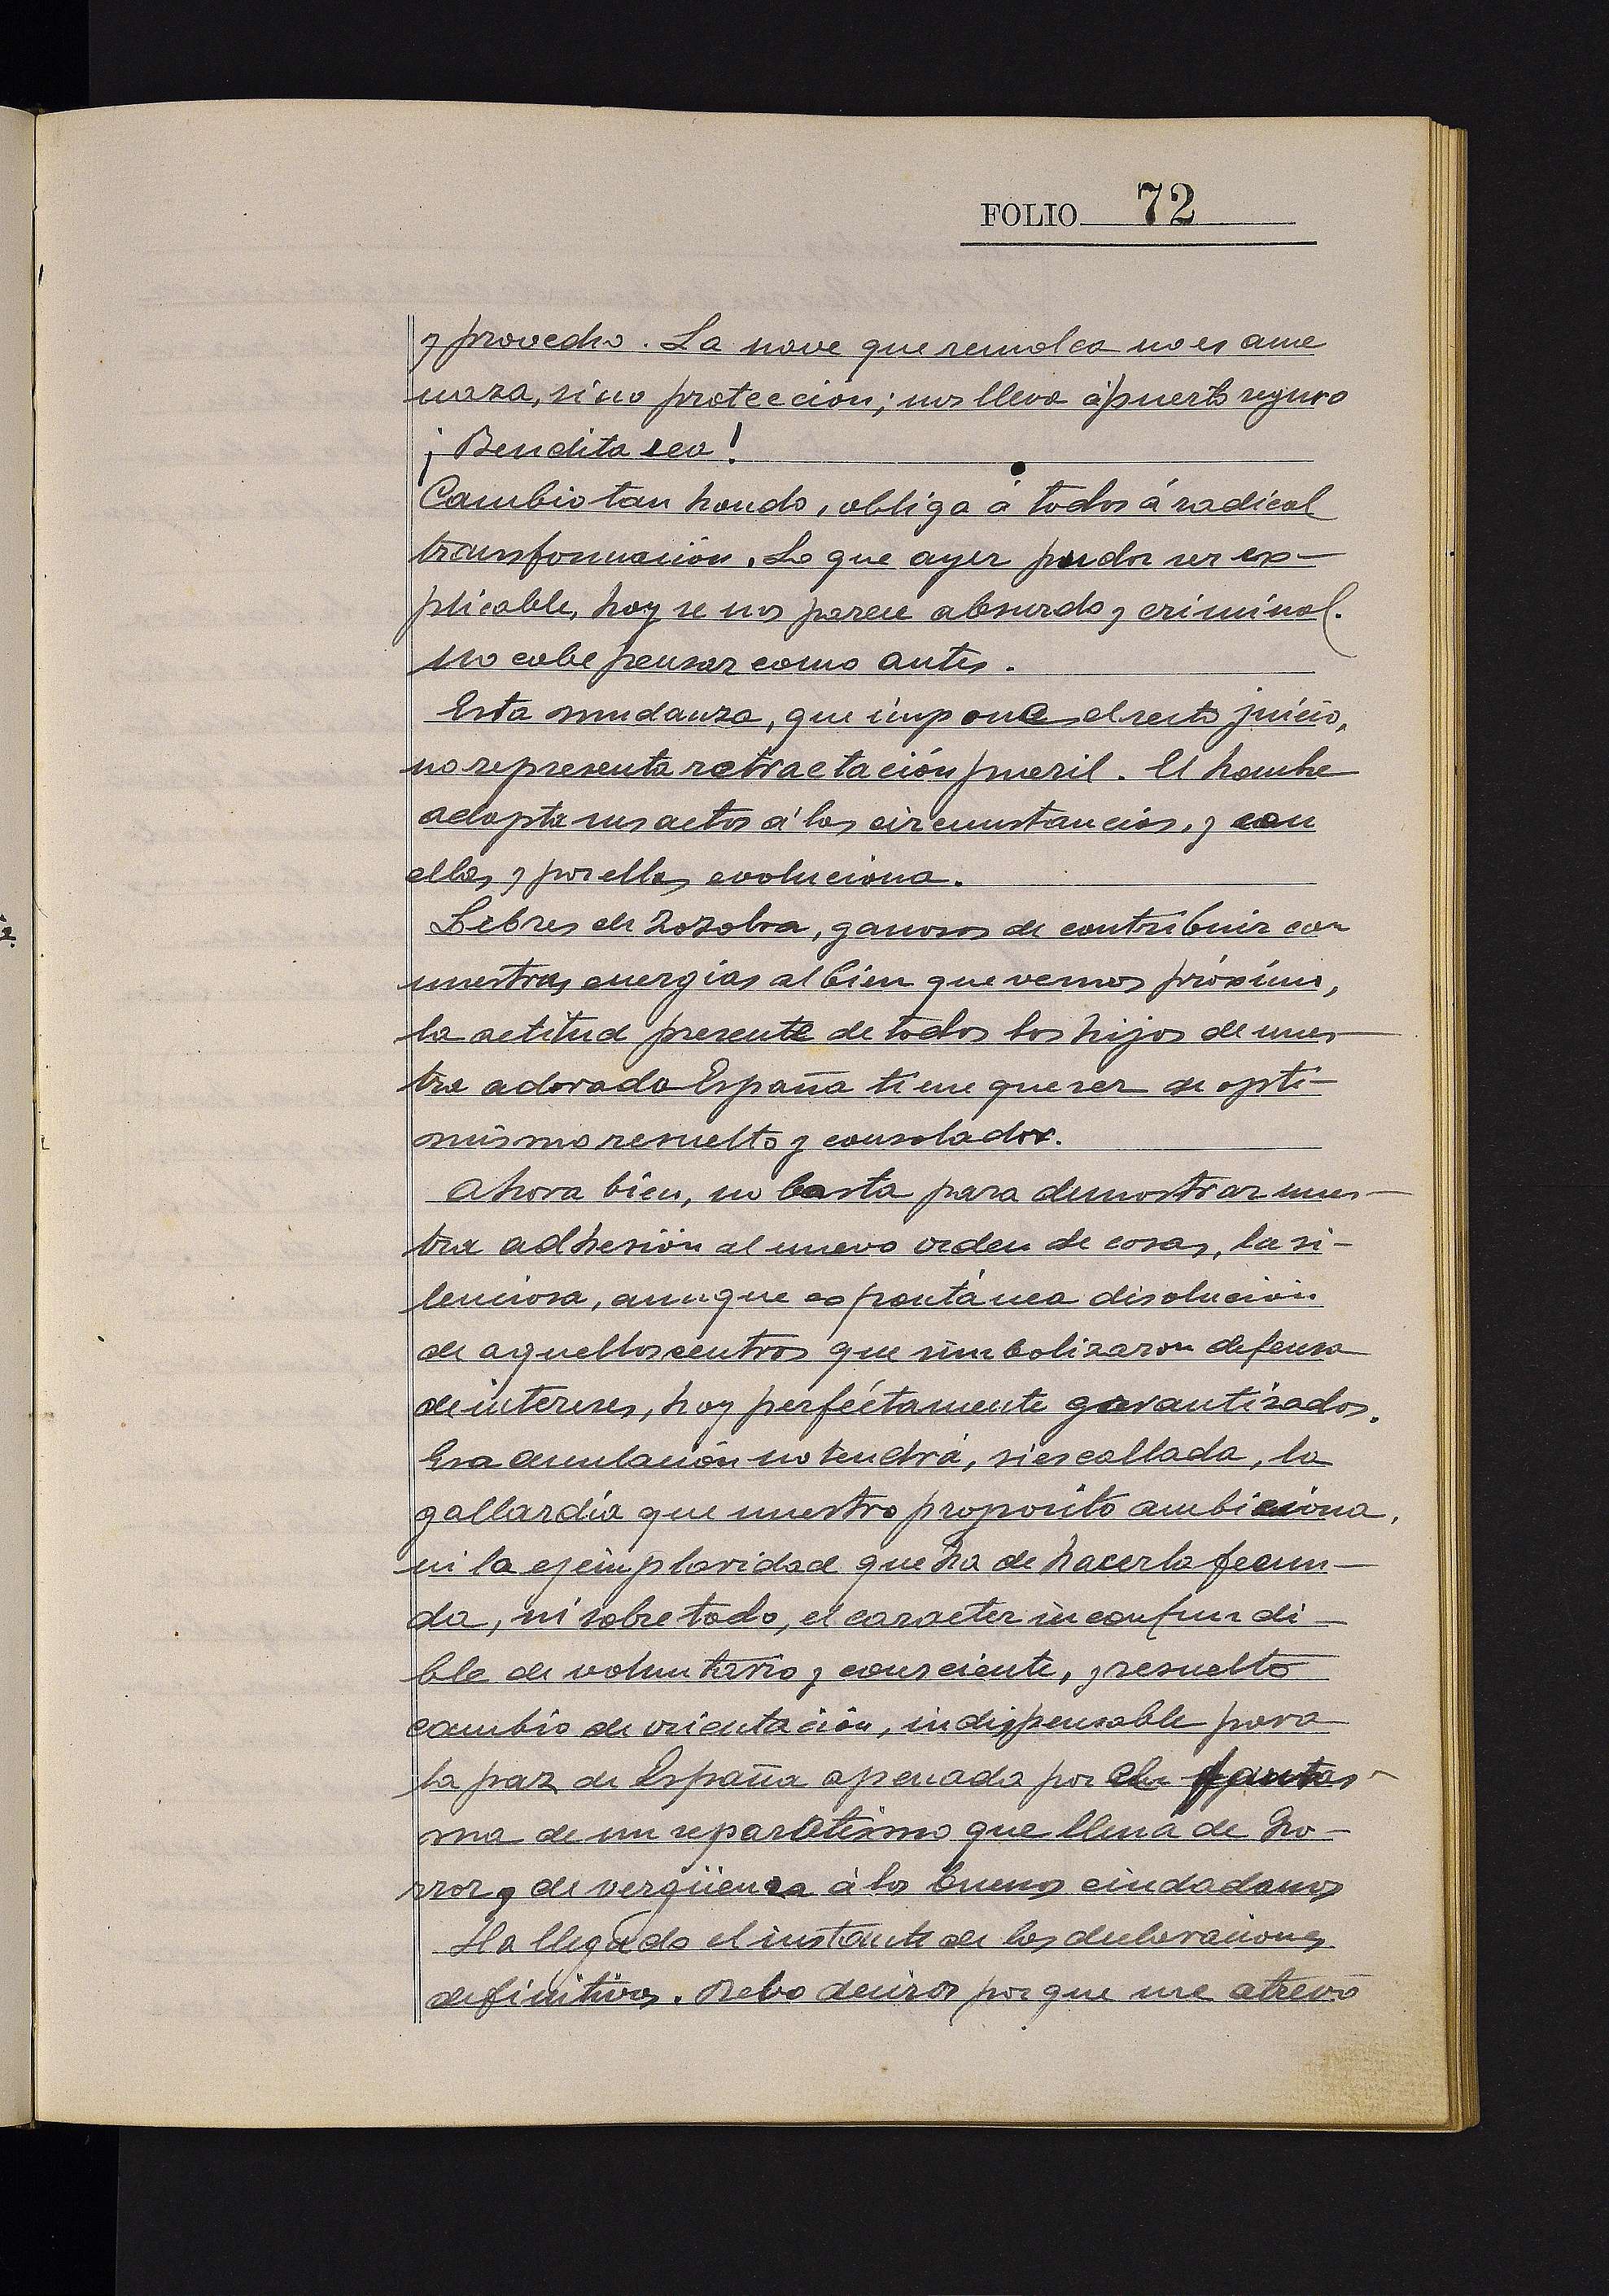 FOLIO 72
y provecho. La nave que remolca no es ame
naza, sino protección; nos lleva á puerto seguro
¡Bendita sea!
Cambio tan hondo, obliga á todos á radical
transformación. Lo que ayer pudo ser ex-
plicable, hoy se nos parece absurdo y criminal.
No cabe pensar como antes.
Esta mudanza, que impone el recto juicio,
no representa retractación pueril. El hombre
adapta sus actos á las circunstancias, y con
ellas y por ellas evoluciona.
Libres de zozobra, ganosos de contribuir con
nuestras energías al bien que vemos próximo,
la actitud presente de todos los hijos de nues-
tra adorada España tiene que ser de opti-
mismo resuelto y consolador.
Ahora bien, no basta para demostrar nues-
tra adhesión al nuevo orden de cosas, la si-
lenciosa, aunque espontánea disolución
de aquellos centros que simbolizaron defensa
de intereses, hoy perféctamente garantizados.
Esa anulación no tendrá, si es callada, la
gallardía que nuestro proposito ambiciona,
ni la ejemplaridad que ha de hacerla fecun-
da, ni sobre todo, el caracter inconfundi-
ble de voluntario y consciente, y resuelto
cambio de orientación, indispensable para
la paz de España apenada por el fantas-
ma de un separatismo que llena de ho-
rror y de vergüenza á los buenos ciudadanos
Ha llegado el instante de las declaraciones
definitivas. Debo deciros por que me atrevo